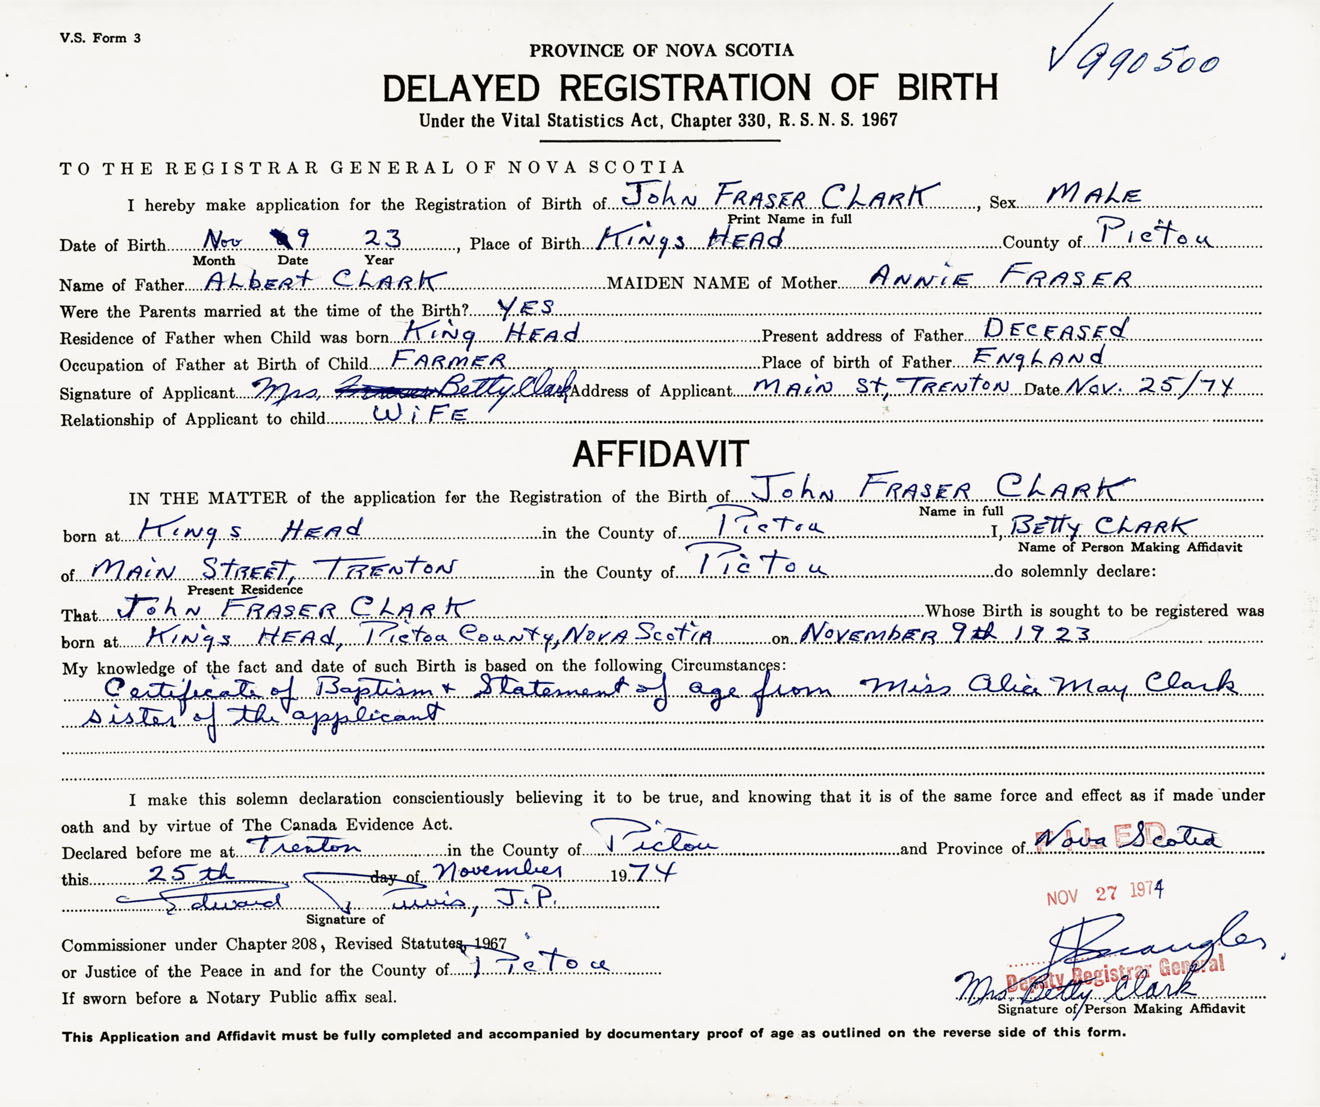 V.S. Form 3
PROVINCE OF NOVA SCOTIA
√990500
DELAYED REGISTRATION OF BIRTH
Under the Vital Statistics Act, Chapter 330, R. S. N. S. 1967
TO THE REGISTRAR GENERAL OF NOVA SCOTIA
I hereby make application for the Registration of Birth of John FRASER CLARK, Sex MALE
Print Name in full
Date of Birth Nov 9 23, Place of Birth Kings HEAd County of Pictou
Month Date Year
Name of Father ALbERt CLARK MAIDEN NAME of Mother ANNiE FRASER
Were the Parents married at the time of the Birth? YES
Residence of Father when Child was born King HEAd Present address of Father DECEASEd
Occupation of Father at Birth of Child FARMER Place of birth of Father ENgLANd
Signature of Applicant Mrs. Betty Clark Address of Applicant MAIN St, TRENTON Date Nov. 25/74
Relationship of Applicant to child WiFE
AFFIDAVIT
IN THE MATTER of the application for the Registration of the Birth of John FRASER CLARK
Name in full
born at Kings HEAd in the County of Pictou I, BEtty CLARK
Name of Person Making Affidavit
of MAIN STREET, TRENTON in the County of Pictou do solemnly declare:
Present Residence
That John FRASER CLARK Whose Birth is sought to be registered was
born at Kings HEAd, Pictou County, NOVA Scotia on NOVEMBER 9th 1923
My knowledge of the fact and date of such Birth is based on the following Circumstances:
Certificate of Baptism + Statement of age from Miss Alice May Clark
sister of the applicant
I make this solemn declaration conscientiously believing it to be true, and knowing that it is of the same force and effect as if made under
oath and by virtue of The Canada Evidence Act.
Declared before me at Trenton in the County of Pictou and Province of Nova Scotia
FILED
this 25th day of November 1974
NOV 27 1974
Edward Purvis, J.P.
Signature of
Commissioner under Chapter 208, Revised Statutes, 1967
or Justice of the Peace in and for the County of Pictou
Deputy Registrar General
Mrs Betty Clark
If sworn before a Notary Public affix seal.
Signature of Person Making Affidavit
This Application and Affidavit must be fully completed and accompanied by documentary proof of age as outlined on the reverse side of this form.